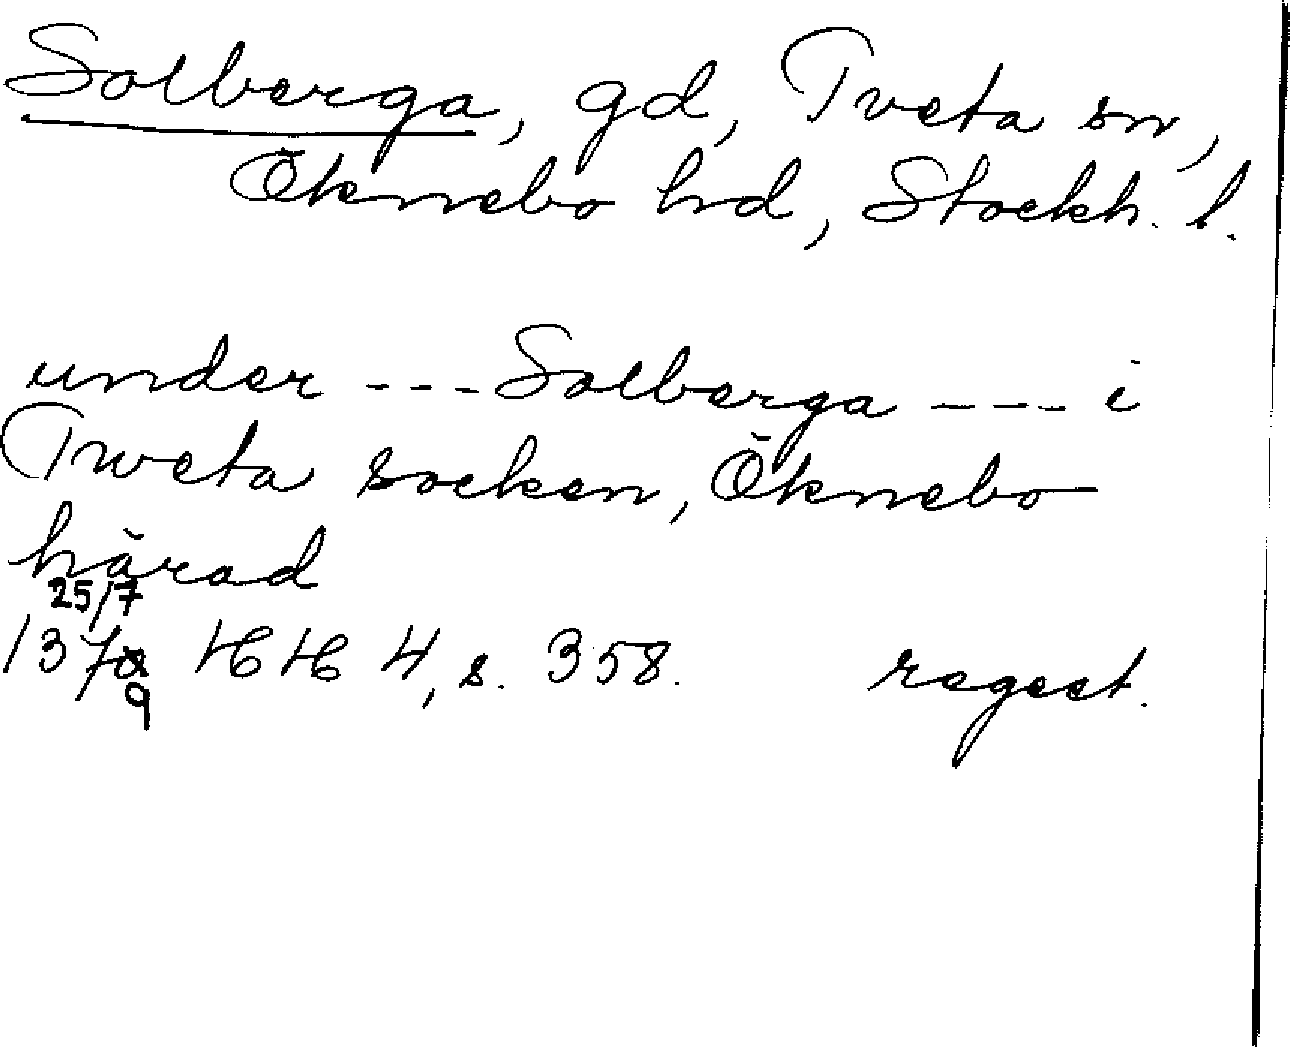 Solberga, gd, Tveta sn,
Öknebo hd, Stockh. l.
under --- Solberga --- i
Tweta socken, Öknebo
härad
25/7
1379 HH 4, s. 358. regest.